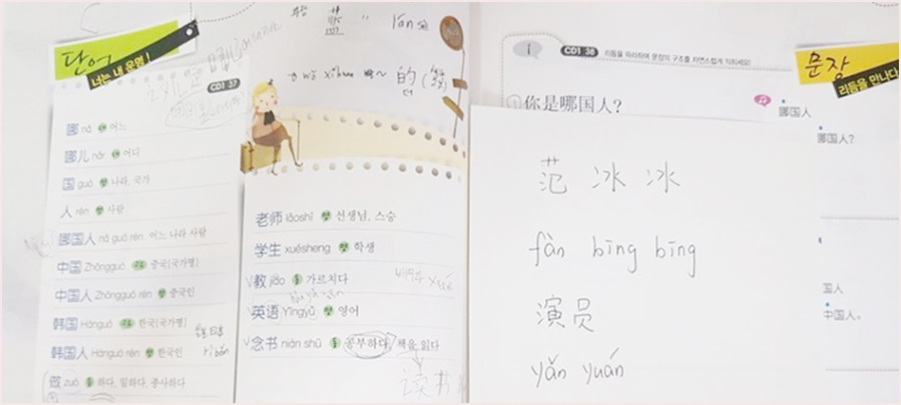 단어
너는 내 운명!
CD1 37
哪 nǎ 어느
哪儿 nǎr 어디
国 guó 나라, 국가
人 rén 사람
哪国人 nǎ guó rén 어느 나라 사람
中国 Zhōngguó 중국[국가명]
中国人 Zhōngguó rén 중국인
韩国 Hánguó 한국[국가명]
韩国人 Hánguó rén 한국인
rì běn
做 zuò 하다, 일하다, 종사하다
的
老师 lǎoshī 선생님, 스승
学生 xuésheng 학생
教 jiāo 가르치다
英语 Yīngyǔ 영어
念书 niàn shū 공부하다, 책을 읽다
读书
CD1 38 리듬을 따라하며 문장의 구조를 자연스럽게 익히세요!
문장
리듬을 만나다
你是哪国人?
哪国人
哪国人?
国人
中国人。
范 冰 冰
fàn bīng bīng
演员
yǎn yuán